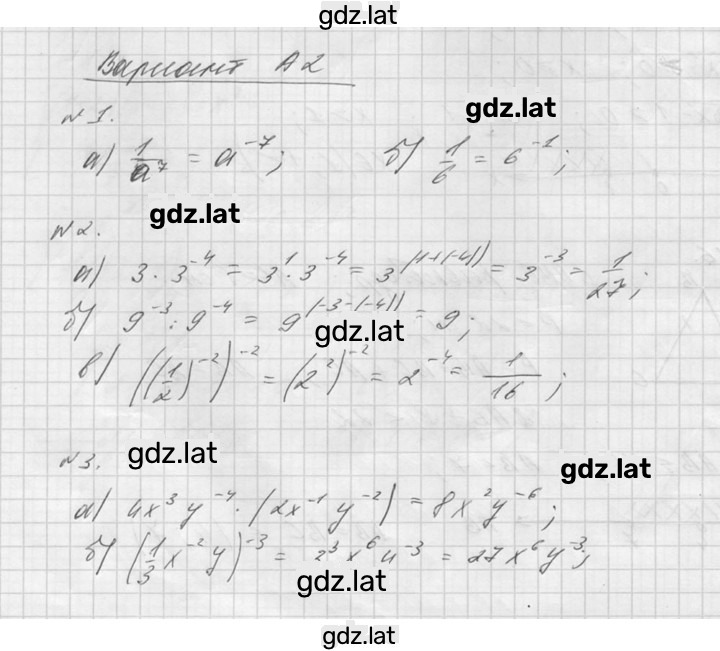 gdz.lat
Вариант А2
№1.
gdz.lat
а) 1/a⁷ = a⁻⁷; б) 1/6 = 6⁻¹;
gdz.lat
№2.
а) 3 · 3⁻⁴ = 3¹ · 3⁻⁴ = 3⁽¹⁺⁽⁻⁴⁾⁾ = 3⁻³ = 1/27;
б) 9⁻³ : 9⁻⁴ = 9⁽⁻³⁻⁽⁻⁴⁾⁾ = 9;
gdz.lat
в) ((1/2)⁻²)⁻² = (2²)⁻² = 2⁻⁴ = 1/16;
№3.
gdz.lat
gdz.lat
а) 4x³y⁻⁴ · (2x⁻¹y⁻²) = 8x²y⁻⁶;
б) (1/3 x⁻²y)⁻³ = 3 x⁶ ⁻³ = 27x⁶y⁻³;
gdz.lat
gdz.lat